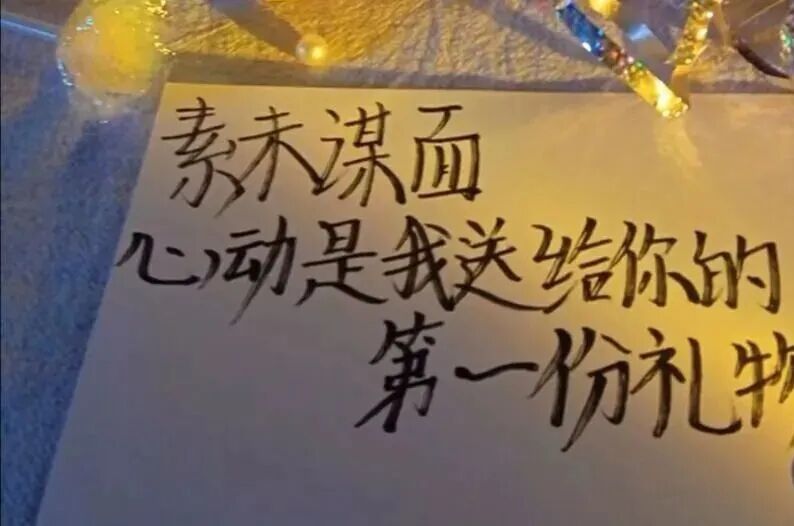 素未谋面
心动是我送给你的
第一份礼物